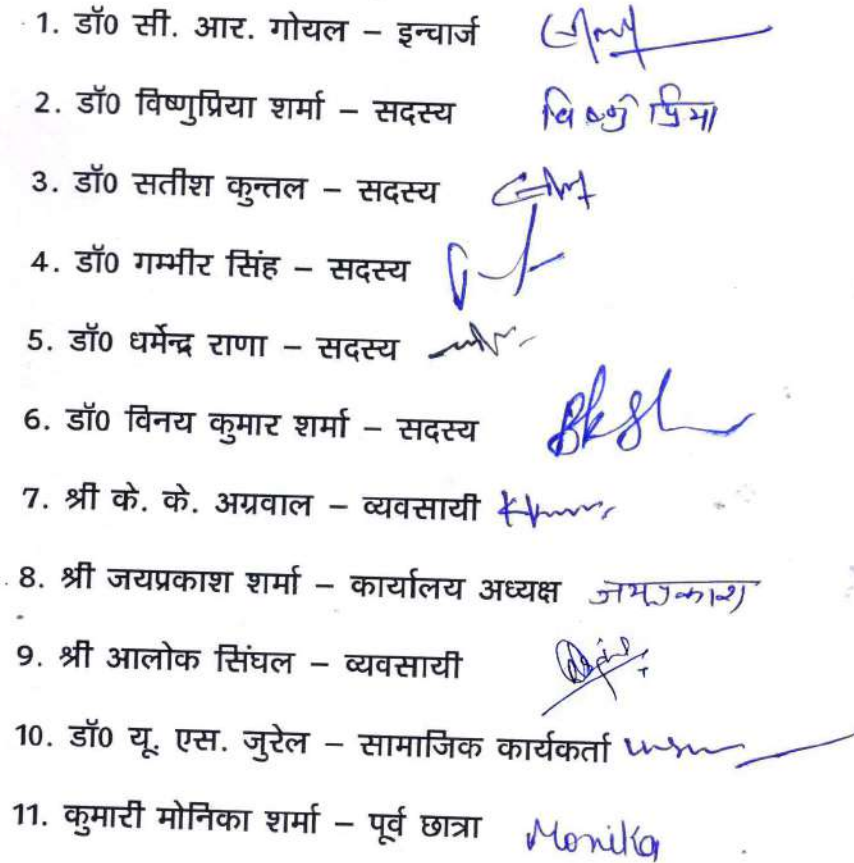 1. डॉ0 सी. आर. गोयल – इन्चार्ज
2. डॉ0 विष्णुप्रिया शर्मा – सदस्य विष्णु प्रिया
3. डॉ0 सतीश कुन्तल – सदस्य
4. डॉ0 गम्भीर सिंह – सदस्य
5. डॉ0 धर्मेन्द्र राणा – सदस्य
6. डॉ0 विनय कुमार शर्मा – सदस्य
7. श्री के. के. अग्रवाल – व्यवसायी
8. श्री जयप्रकाश शर्मा – कार्यालय अध्यक्ष जयप्रकाश
9. श्री आलोक सिंघल – व्यवसायी
10. डॉ0 यू. एस. जुरेल – सामाजिक कार्यकर्ता
11. कुमारी मोनिका शर्मा – पूर्व छात्रा Monika